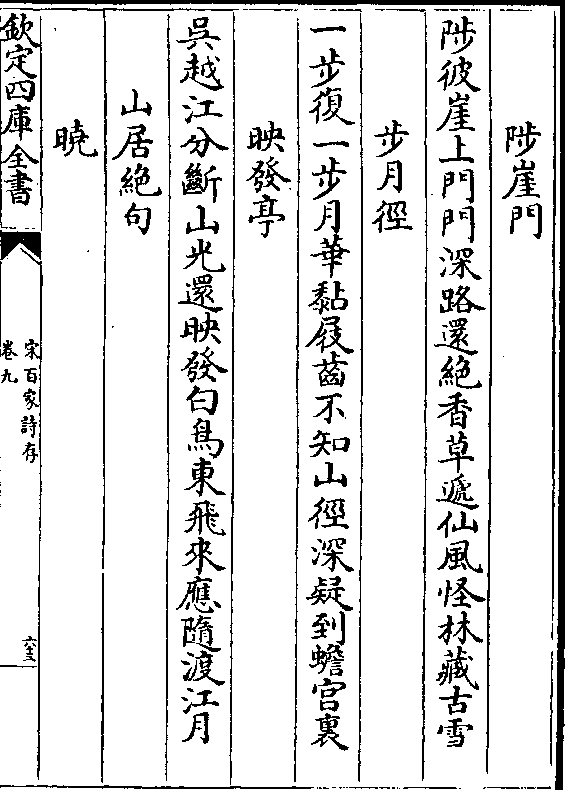 陟崖門
陟彼崖上門門深路還絶香草遞仙風怪林藏古雪
步月徑
一步復一步月華黏屐齒不知山徑深疑到蟾宫裏
映發亭
吳越江分斷山光還映發白鳥東飛來應隨渡江月
山居絶句
曉
欽定四庫全書
宋百家詩存
卷九
六三